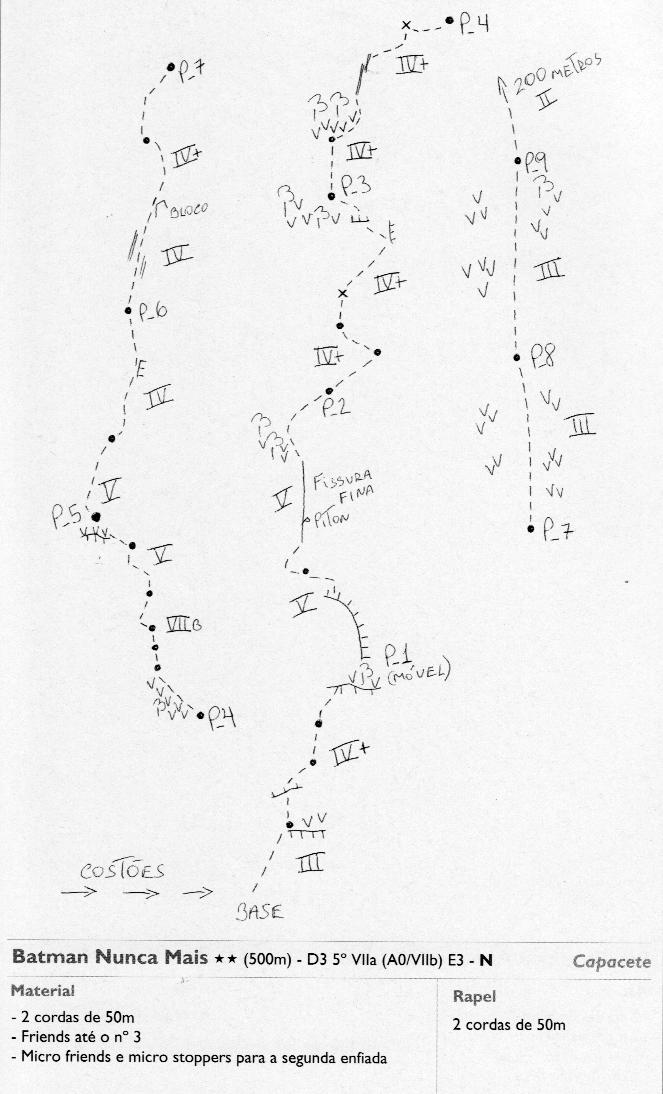 P_4
IV+
P_7
200 METROS
II
IV+
IV+
P_9
P_3
BLOCO
IV
III
IV+
P_6
IV+
P_8
IV
P_2
III
V
V
FISSURA
FINA
PITON
P_5
P_7
V
V
VIIB
P_1
(MÓVEL)
P_4
IV+
III
COSTÕES
BASE
Batman Nunca Mais ★★ (500m) - D3 5º VIIa (A0/VIIb) E3 - N
Capacete
Material
- 2 cordas de 50m
- Friends até o nº 3
- Micro friends e micro stoppers para a segunda enfiada
Rapel
2 cordas de 50m